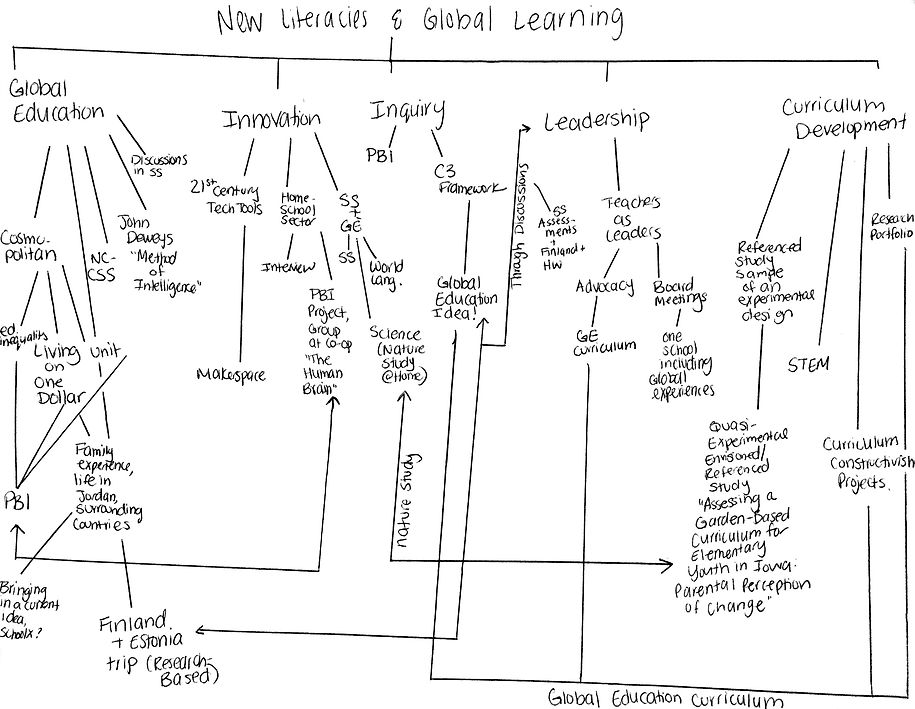 New Literacies & Global Learning
Global
Education
Discussions
in SS
Cosmo-
politan
NC-
CSS
John
Deweys
"Method
of
Intelligence"
ed.
inequality
Living
on
One
Dollar
unit
PBI
Family
experience,
life in
Jordan,
surrounding
countries
Bringing
in a current
idea,
Schools?
Finland
+ Estonia
trip (Research-
Based)
Innovation
21st Century
Tech Tools
Makespace
Home-
School
Sector
Interview
PBI
Project,
Group
at Co-op
"The
Human
Brain"
SS
+
GE
SS
World
Lang.
Science
(Nature
Study
@Home)
Nature Study
Inquiry
PBI
C3
Framework
Global
Education
Idea!
Through Discussions
SS
Assess-
ments
+
Finland +
HW
Leadership
Teachers
as
Leaders
Advocacy
GE
Curriculum
Board
Meetings
one
school
including
Global
experiences
Curriculum
Development
Referenced
Study
Sample
of an
experimental
design
Quasi-
Experimental
Envisioned/
Referenced
Study
"Assessing a
Garden-Based
Curriculum for
Elementary
Youth in Iowa:
Parental Perception
of Change"
STEM
Curriculum
Constructivism
Projects.
Research
Portfolio
Global Education Curriculum